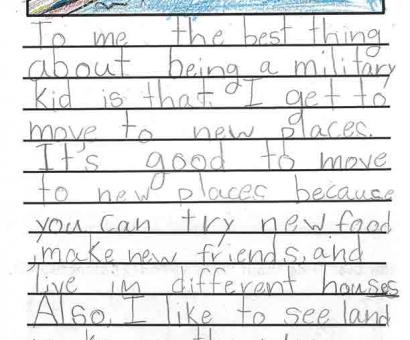 To me the best thing
about being a military
kid is that I get to
move to new places.
It's good to move
to new places because
you can try new food
,make new friends, and
live in different houses
Also, I like to see land